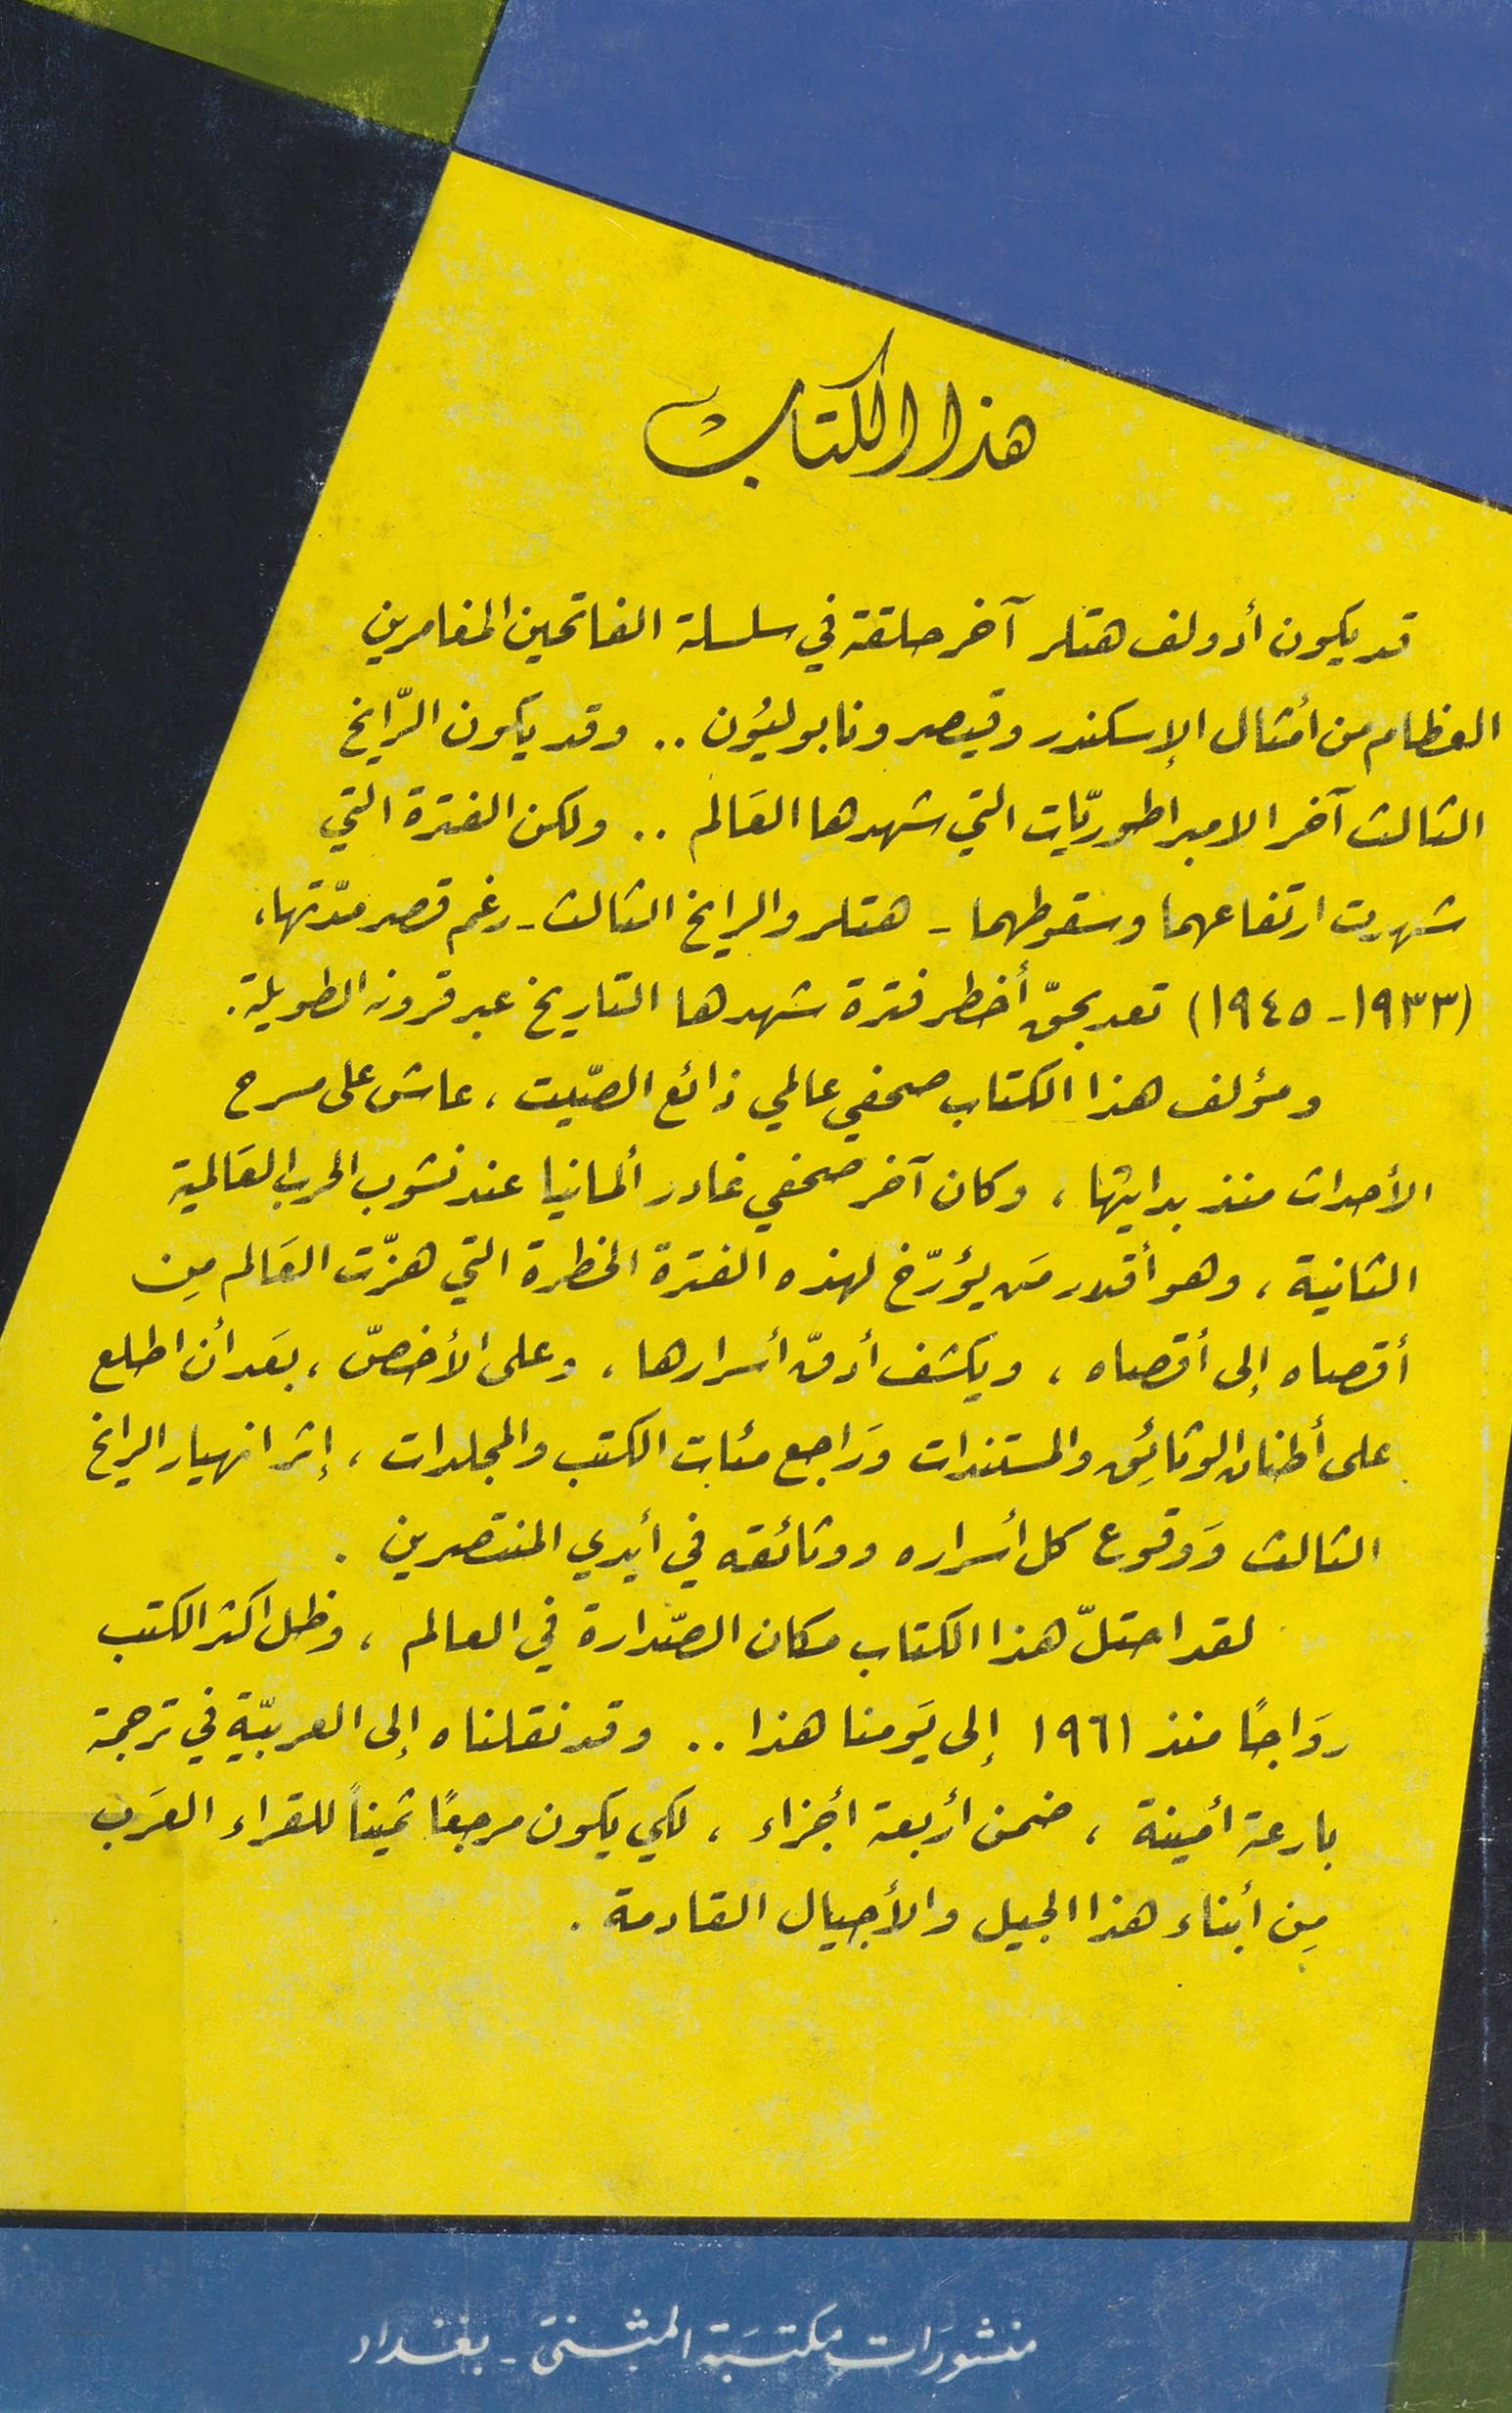 هذا الكتاب
قد يكون أدولف هتلر آخر حلقة في سلسلة الفاتحين المغامرين
العظام من أمثال الإسكندر وقيصر ونابوليُون .. وقد يكون الرّايخ
الثالث آخر الامبراطوريّات التي شهدها العَالم .. ولكن الفترة التي
شهدت ارتفاعهما وسقوطهما - هتلر والرايخ الثالث - رغم قصر مدّتها،
(١٩٣٣ - ١٩٤٥) تعد بحقّ أخطر فترة شهدها التاريخ عبر قرونه الطويلة.
ومؤلف هذا الكتاب صحفي عالمي ذائع الصّيت ، عاش على مسرح
الأحداث منذ بدايتها ، وكان آخر صحفي غادر ألمانيا عند نشوب الحرب العَالمية
الثانية ، وهو أقدر مَن يؤرّخ لهذه الفترة الخطرة التي هزّت العَالم مِن
أقصاه إلى أقصاه ، ويكشف أدقّ أسرارها ، وعلى الأخصّ ، بعَد أن اطلع
على أطنان الوثائِق والمستندات وَراجع مئات الكتب والمجلدات ، إثر انهيار الرايخ
الثالث وَوقوع كل أسراره ووثائقه في أيدي المنتصرين .
لقد احتلّ هذا الكتاب مكان الصّدارة في العالم ، وظل اكثر الكتب
روَاجًا منذ ١٩٦١ إلى يَومنا هذا .. وقد نقلناه إلى العربيّة في ترجمة
بارعة أمينة ، ضمن أربعة أجزاء ، لكي يكون مرجعًا ثميناً للقراء العرَب
مِن أبناء هذا الجيل والأجيال القادمة .
منشورَات مكتبَة المثنىَ - بغداد